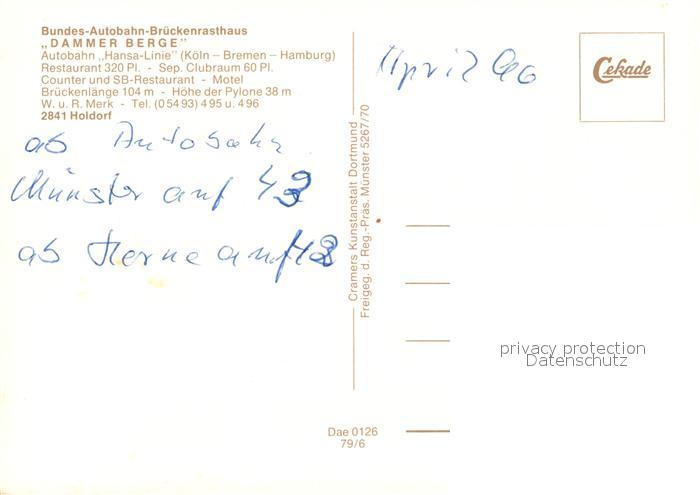 Bundes-Autobahn-Brückenrasthaus
„DAMMER BERGE"
Autobahn „Hansa-Linie" (Köln – Bremen – Hamburg)
Restaurant 320 Pl. - Sep. Clubraum 60 Pl.
Counter und SB-Restaurant - Motel
Brückenlänge 104 m - Höhe der Pylone 38 m
W. u. R. Merk - Tel. (0 54 93) 4 95 u. 4 96
2841 Holdorf
ab Autobahn
Münster auf 43
ab Herne auf
April
Cekade
Cramers Kunstanstalt Dortmund
Freigeg. d. Reg.-Präs. Münster 5267/70
privacy protection
Datenschutz
Dae 0126
79/6